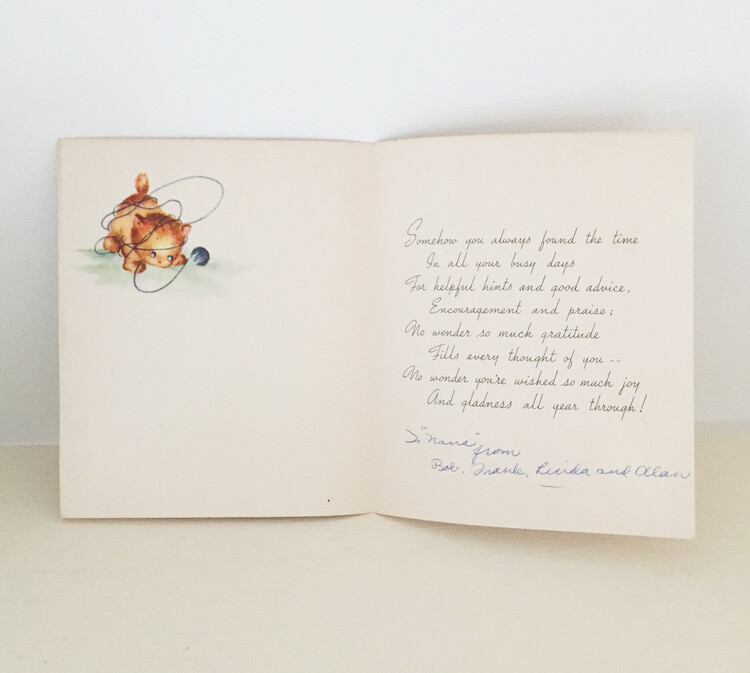 Somehow you always found the time
In all your busy days
For helpful hints and good advice,
Encouragement and praise;
No wonder so much gratitude
Fills every thought of you --
No wonder you're wished so much joy
And gladness all year through!
To "Nana" from
Bob, Frank, Linda and Alan